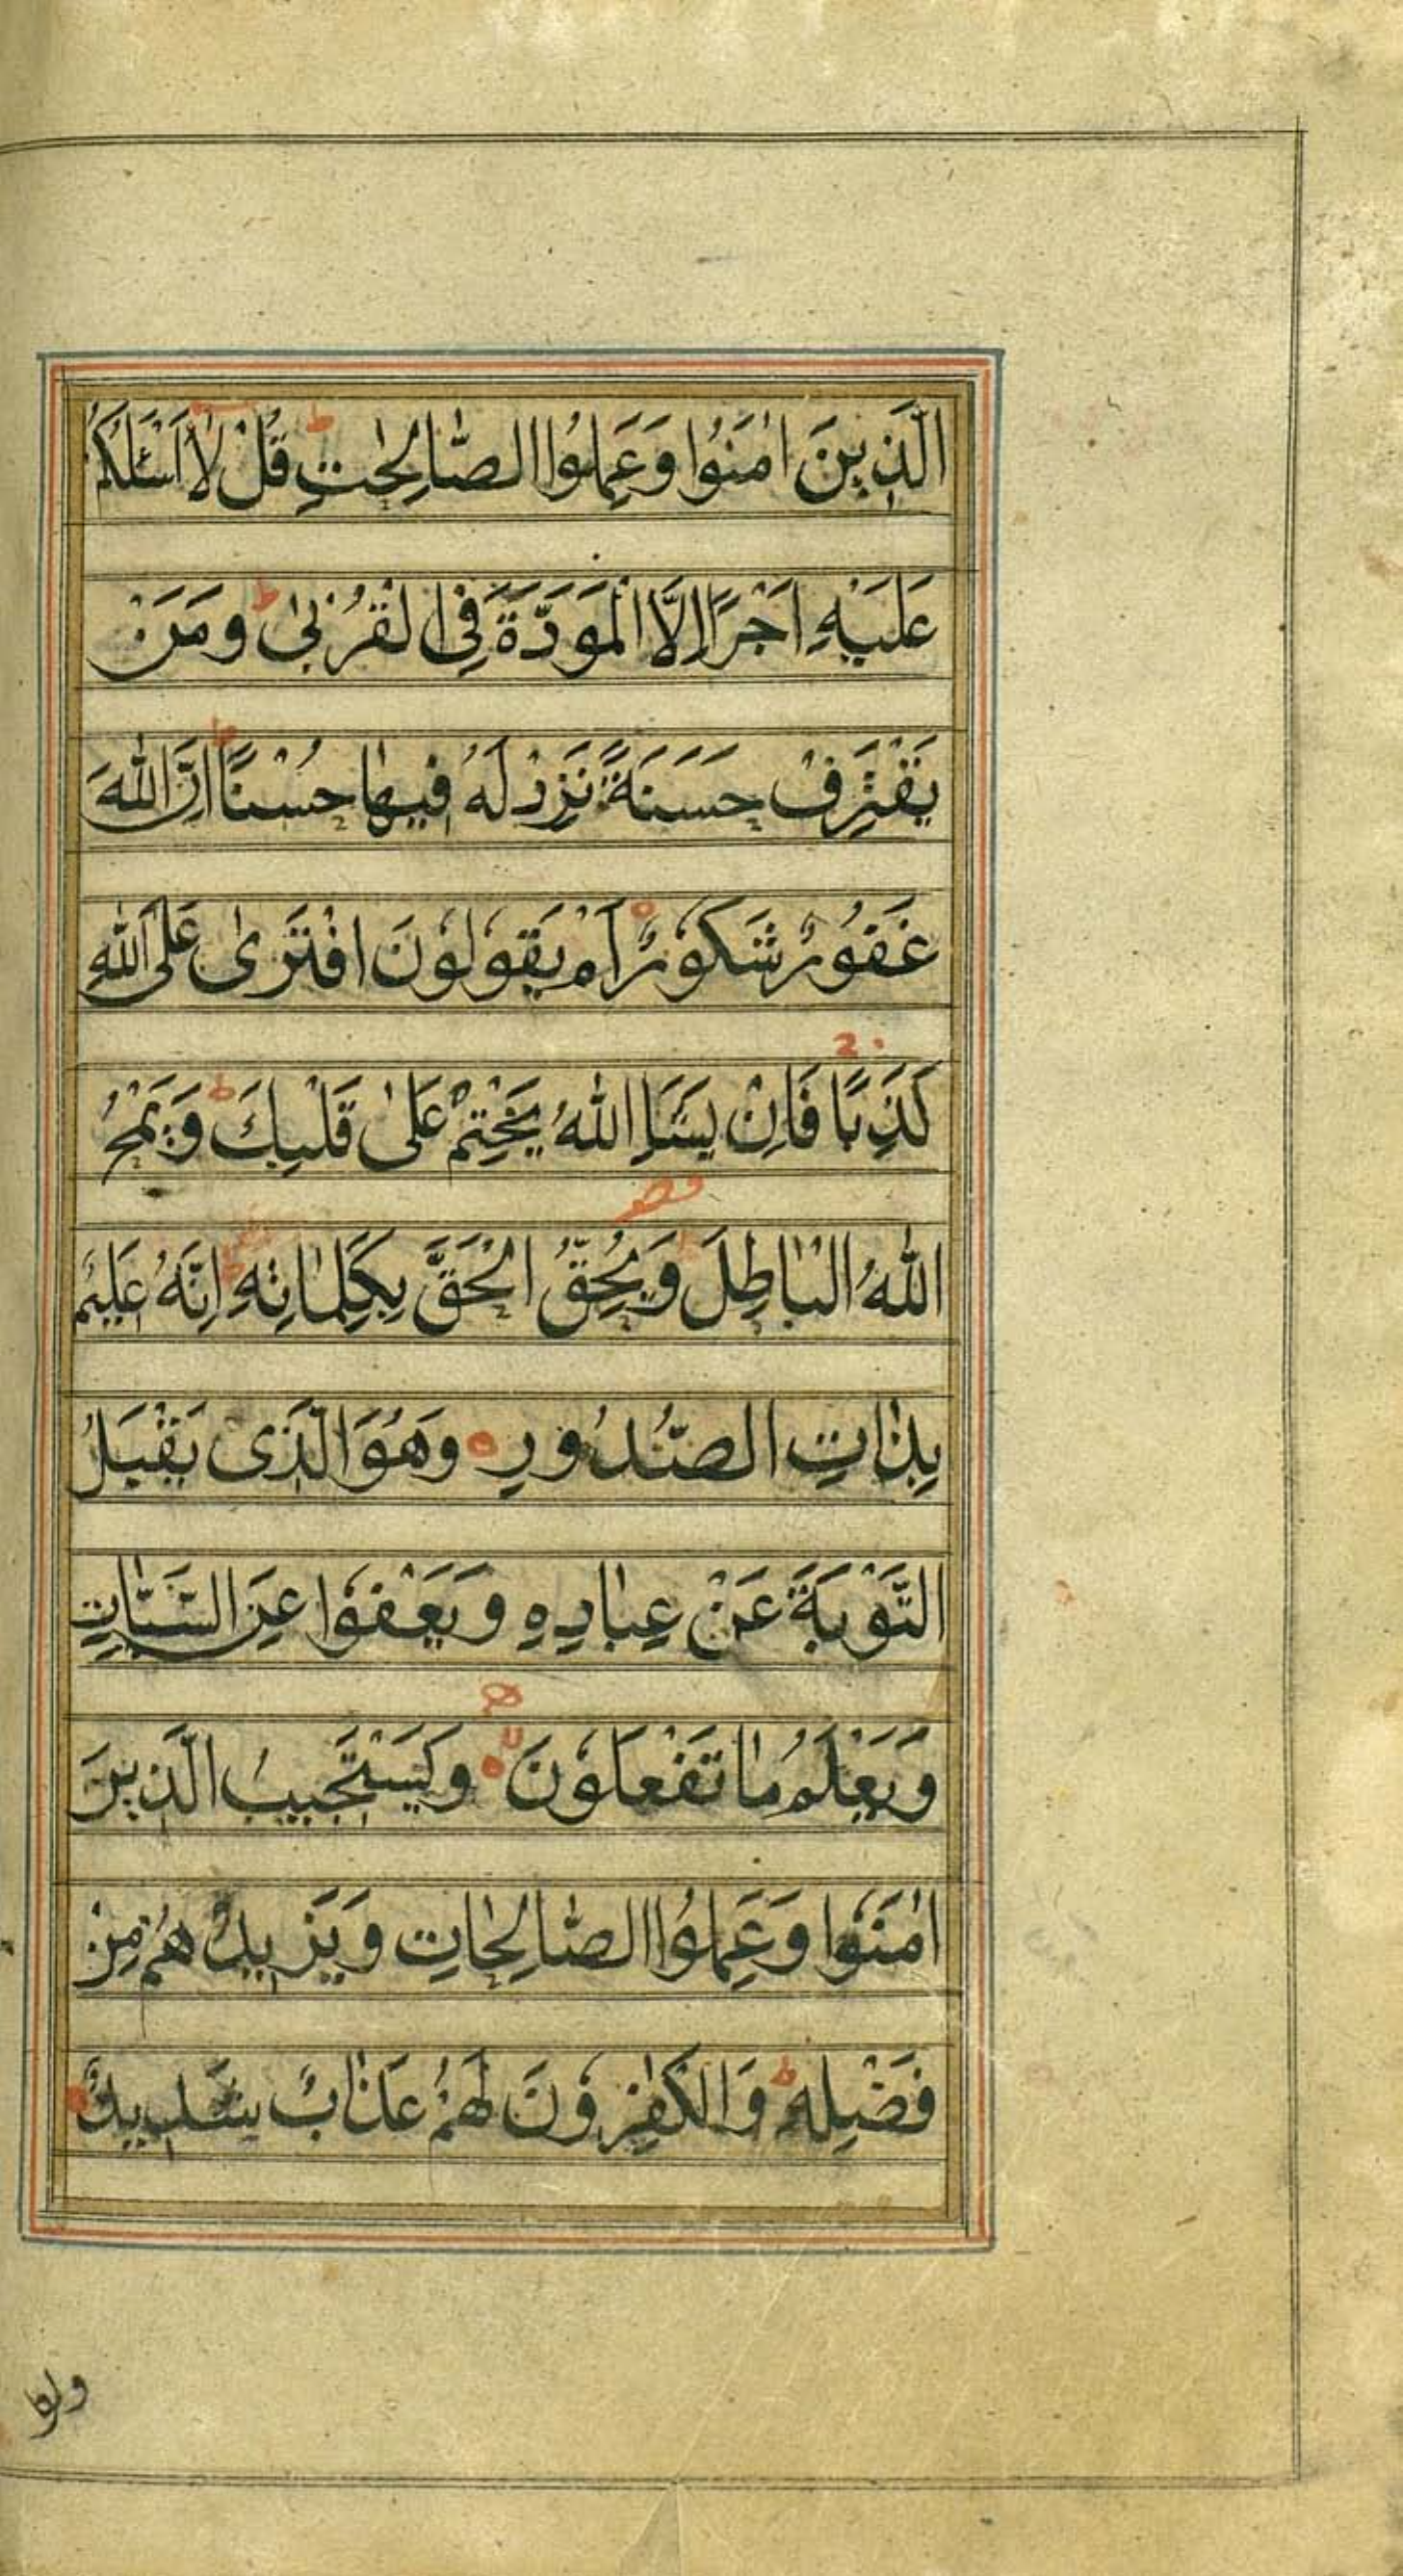 الَّذِينَ اٰمَنُوا وَعَمِلُوا الصَّالِحٰتِ قُلْ لَا اَسْئَلُكُمْ
عَلَيْهِ اَجْرًا اِلَّا الْمَوَدَّةَ فِي الْقُرْبىٰ وَمَنْ
يَقْتَرِفْ حَسَنَةً نَزِدْ لَهُ فِيهٰا حُسْنًا اِنَّ اللّٰهَ
غَفُورٌ شَكُورٌ اَمْ يَقُولُونَ افْتَرىٰ عَلَى اللّٰهِ
كَذِبًا فَاِنْ يَشَاِ اللّٰهُ يَخْتِمْ عَلىٰ قَلْبِكَ وَيَمْحُ
اللّٰهُ الْبٰاطِلَ وَيُحِقُّ الْحَقَّ بِكَلِمٰاتِهِ اِنَّهُ عَلِيمٌ
بِذٰاتِ الصُّدُورِ وَهُوَ الَّذِى يَقْبَلُ
التَّوْبَةَ عَنْ عِبٰادِهِ وَيَعْفُوا عَنِ السَّيِّئٰاتِ
وَيَعْلَمُ مٰا تَفْعَلُونَ وَيَسْتَجِيبُ الَّذِينَ
اٰمَنُوا وَعَمِلُوا الصّٰالِحٰاتِ وَيَزِيدُهُمْ مِنْ
فَضْلِهِ وَالْكٰفِرُونَ لَهُمْ عَذٰابٌ شَدِيدٌ
ولو